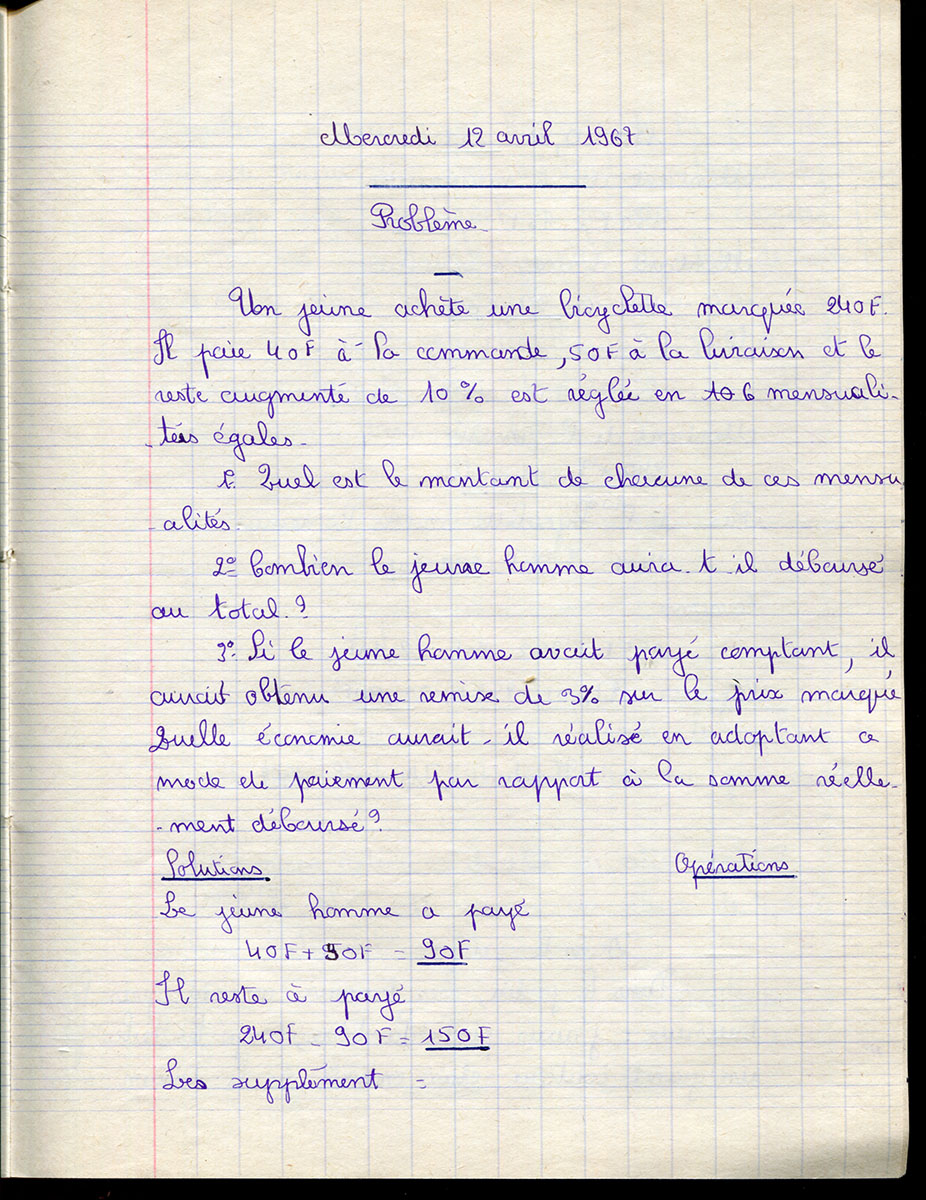 Mercredi 12 avril 1967
Problème
Un jeune achète une bicyclette marquée 240F.
Il paie 40F à la commande, 50F à la livraison et le
reste augmenté de 10% est réglée en 6 mensuali-
-tés égales.
1°. Quel est le montant de chacune de ces mensu
-alités.
2° Combien le jeune homme aura-t-il déboursé
au total.?
3° Si le jeune homme avait payé comptant, il
aurait obtenu une remise de 3% sur le prix marqué
Quelle économie aurait-il réalisé en adoptant ce
mode de paiement par rapport à la somme réelle-
-ment déboursé?
Solutions. Opérations
Le jeune homme a payé
40F + 50F = 90F
Il reste à payé
240F - 90F = 150F
Les supplément =